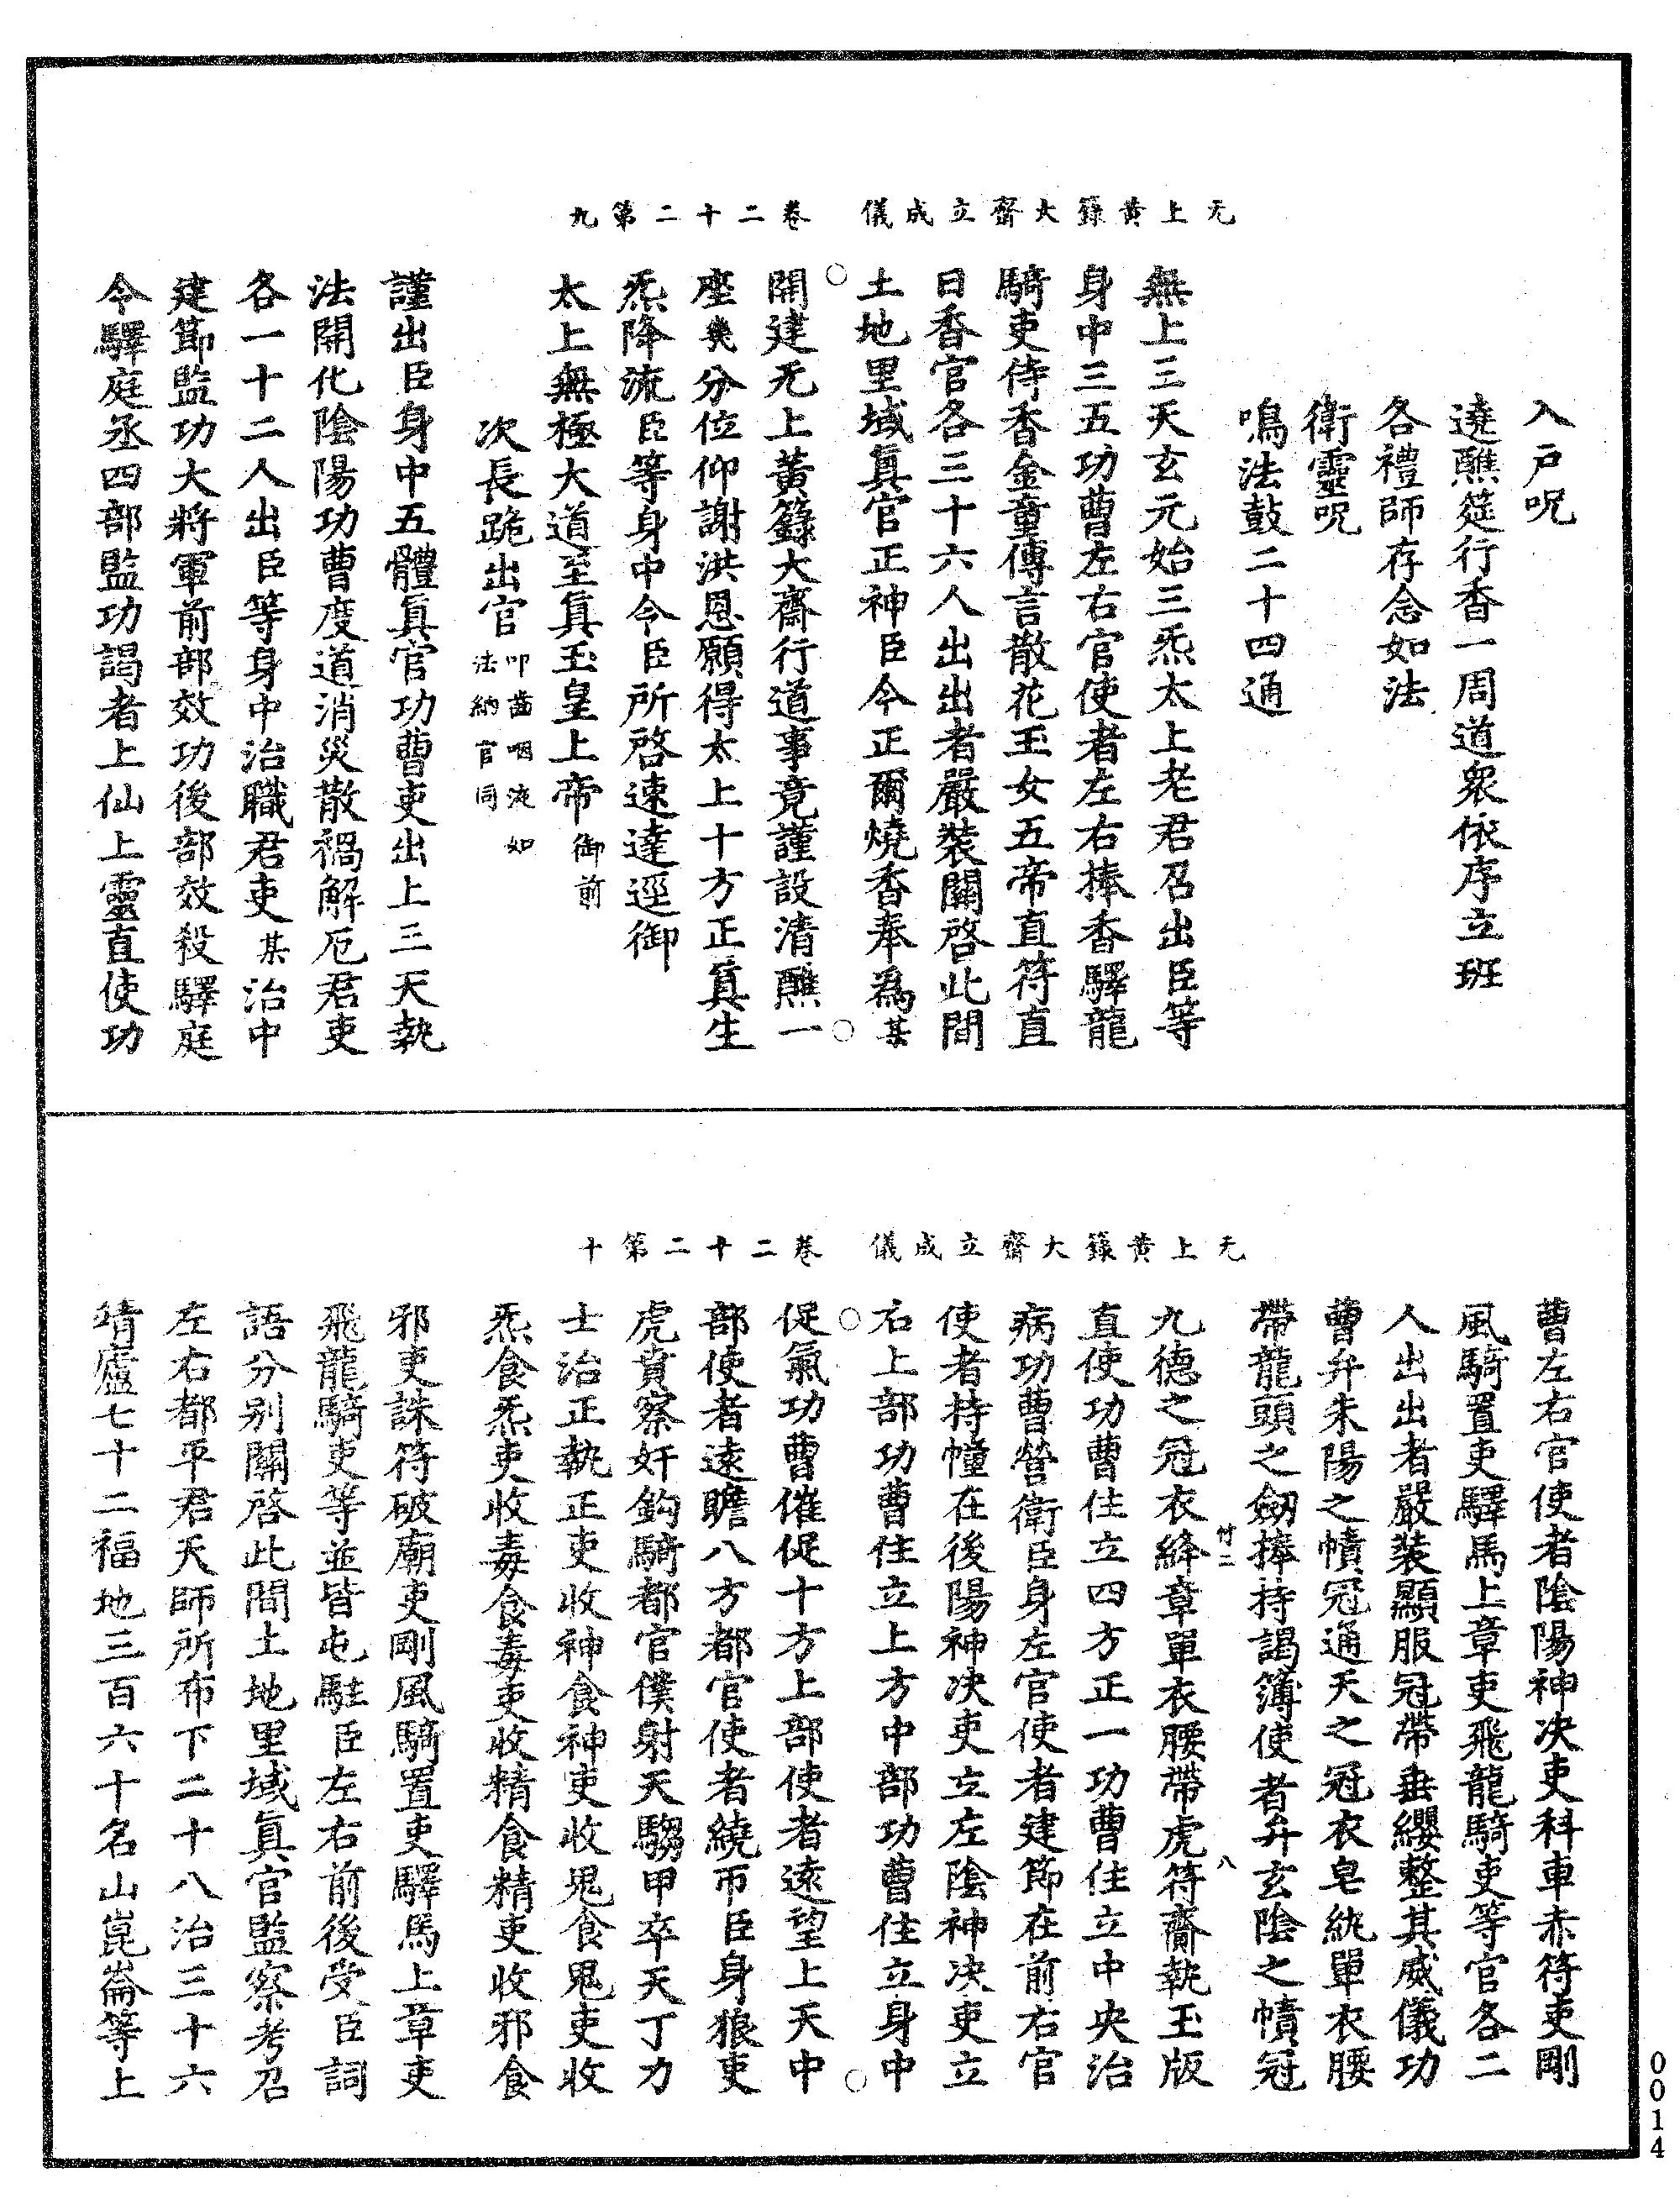 无上黃籙大齋立成儀 卷二十二第九
入戶呪
遶醮筵行香一周道衆依序立班
各禮師存念如法
衛靈呪
鳴法鼓二十四通
無上三天玄元始三炁太上老君召出臣等
身中三五功曹左右官使者左右捧香驛龍
騎吏侍香金童傳言散花玉女五帝直符直
日香官各三十六人出出者嚴裝關啓此間
土地里域眞官正神臣今正爾燒香奉爲某
開建无上黃籙大齋行道事竟謹設清醮一
座幾分位仰謝洪恩願得太上十方正眞生
炁降流臣等身中令臣所啓速達逕御
太上無極大道至眞玉皇上帝御前
次長跪出官叩齒咽液如
法納官同
謹出臣身中五體眞官功曹吏出上三天執
法開化陰陽功曹度道消災散禍解厄君吏
各一十二人出臣等身中治職君吏某治中
建節監功大將軍前部效功後部效殺驛庭
令驛庭丞四部監功謁者上仙上靈直使功
无上黃籙大齋立成儀 卷二十二第十
曹左右官使者陰陽神决吏科車赤符吏剛
風騎置吏驛馬上章吏飛龍騎吏等官各二
人出出者嚴装顯服冠帶垂纓整其威儀功
曹弁朱陽之幘冠通天之冠衣皂紈單衣腰
帶龍頭之劒捧持謁簿使者弁玄陰之幘冠
竹二 八
九德之冠衣絳章單衣腰帶虎符齎執玉版
直使功曹住立四方正一功曹住立中央治
病功曹營衛臣身左官使者建節在前右官
使者持幢在後陽神决吏立左陰神决吏立
右上部功曹住立上方中部功曹住立身中
促氣功曹催促十方上部使者遠望上天中
部使者遠瞻八方都官使者繞帀臣身狼吏
虎賁察奸鈎騎都官僕射天騶甲卒天丁力
士治正執正吏收神食神吏收鬼食鬼吏收
炁食炁吏收毒食毒吏收精食精吏收邪食
邪吏誅符破廟吏剛風騎置吏驛馬上章吏
飛龍騎吏等並皆屯駐臣左右前後受臣詞
語分别關啓此間土地里域眞官監察考召
左右都平君天師所布下二十八治三十六
靖廬七十二福地三百六十名山崑崙等上
0014